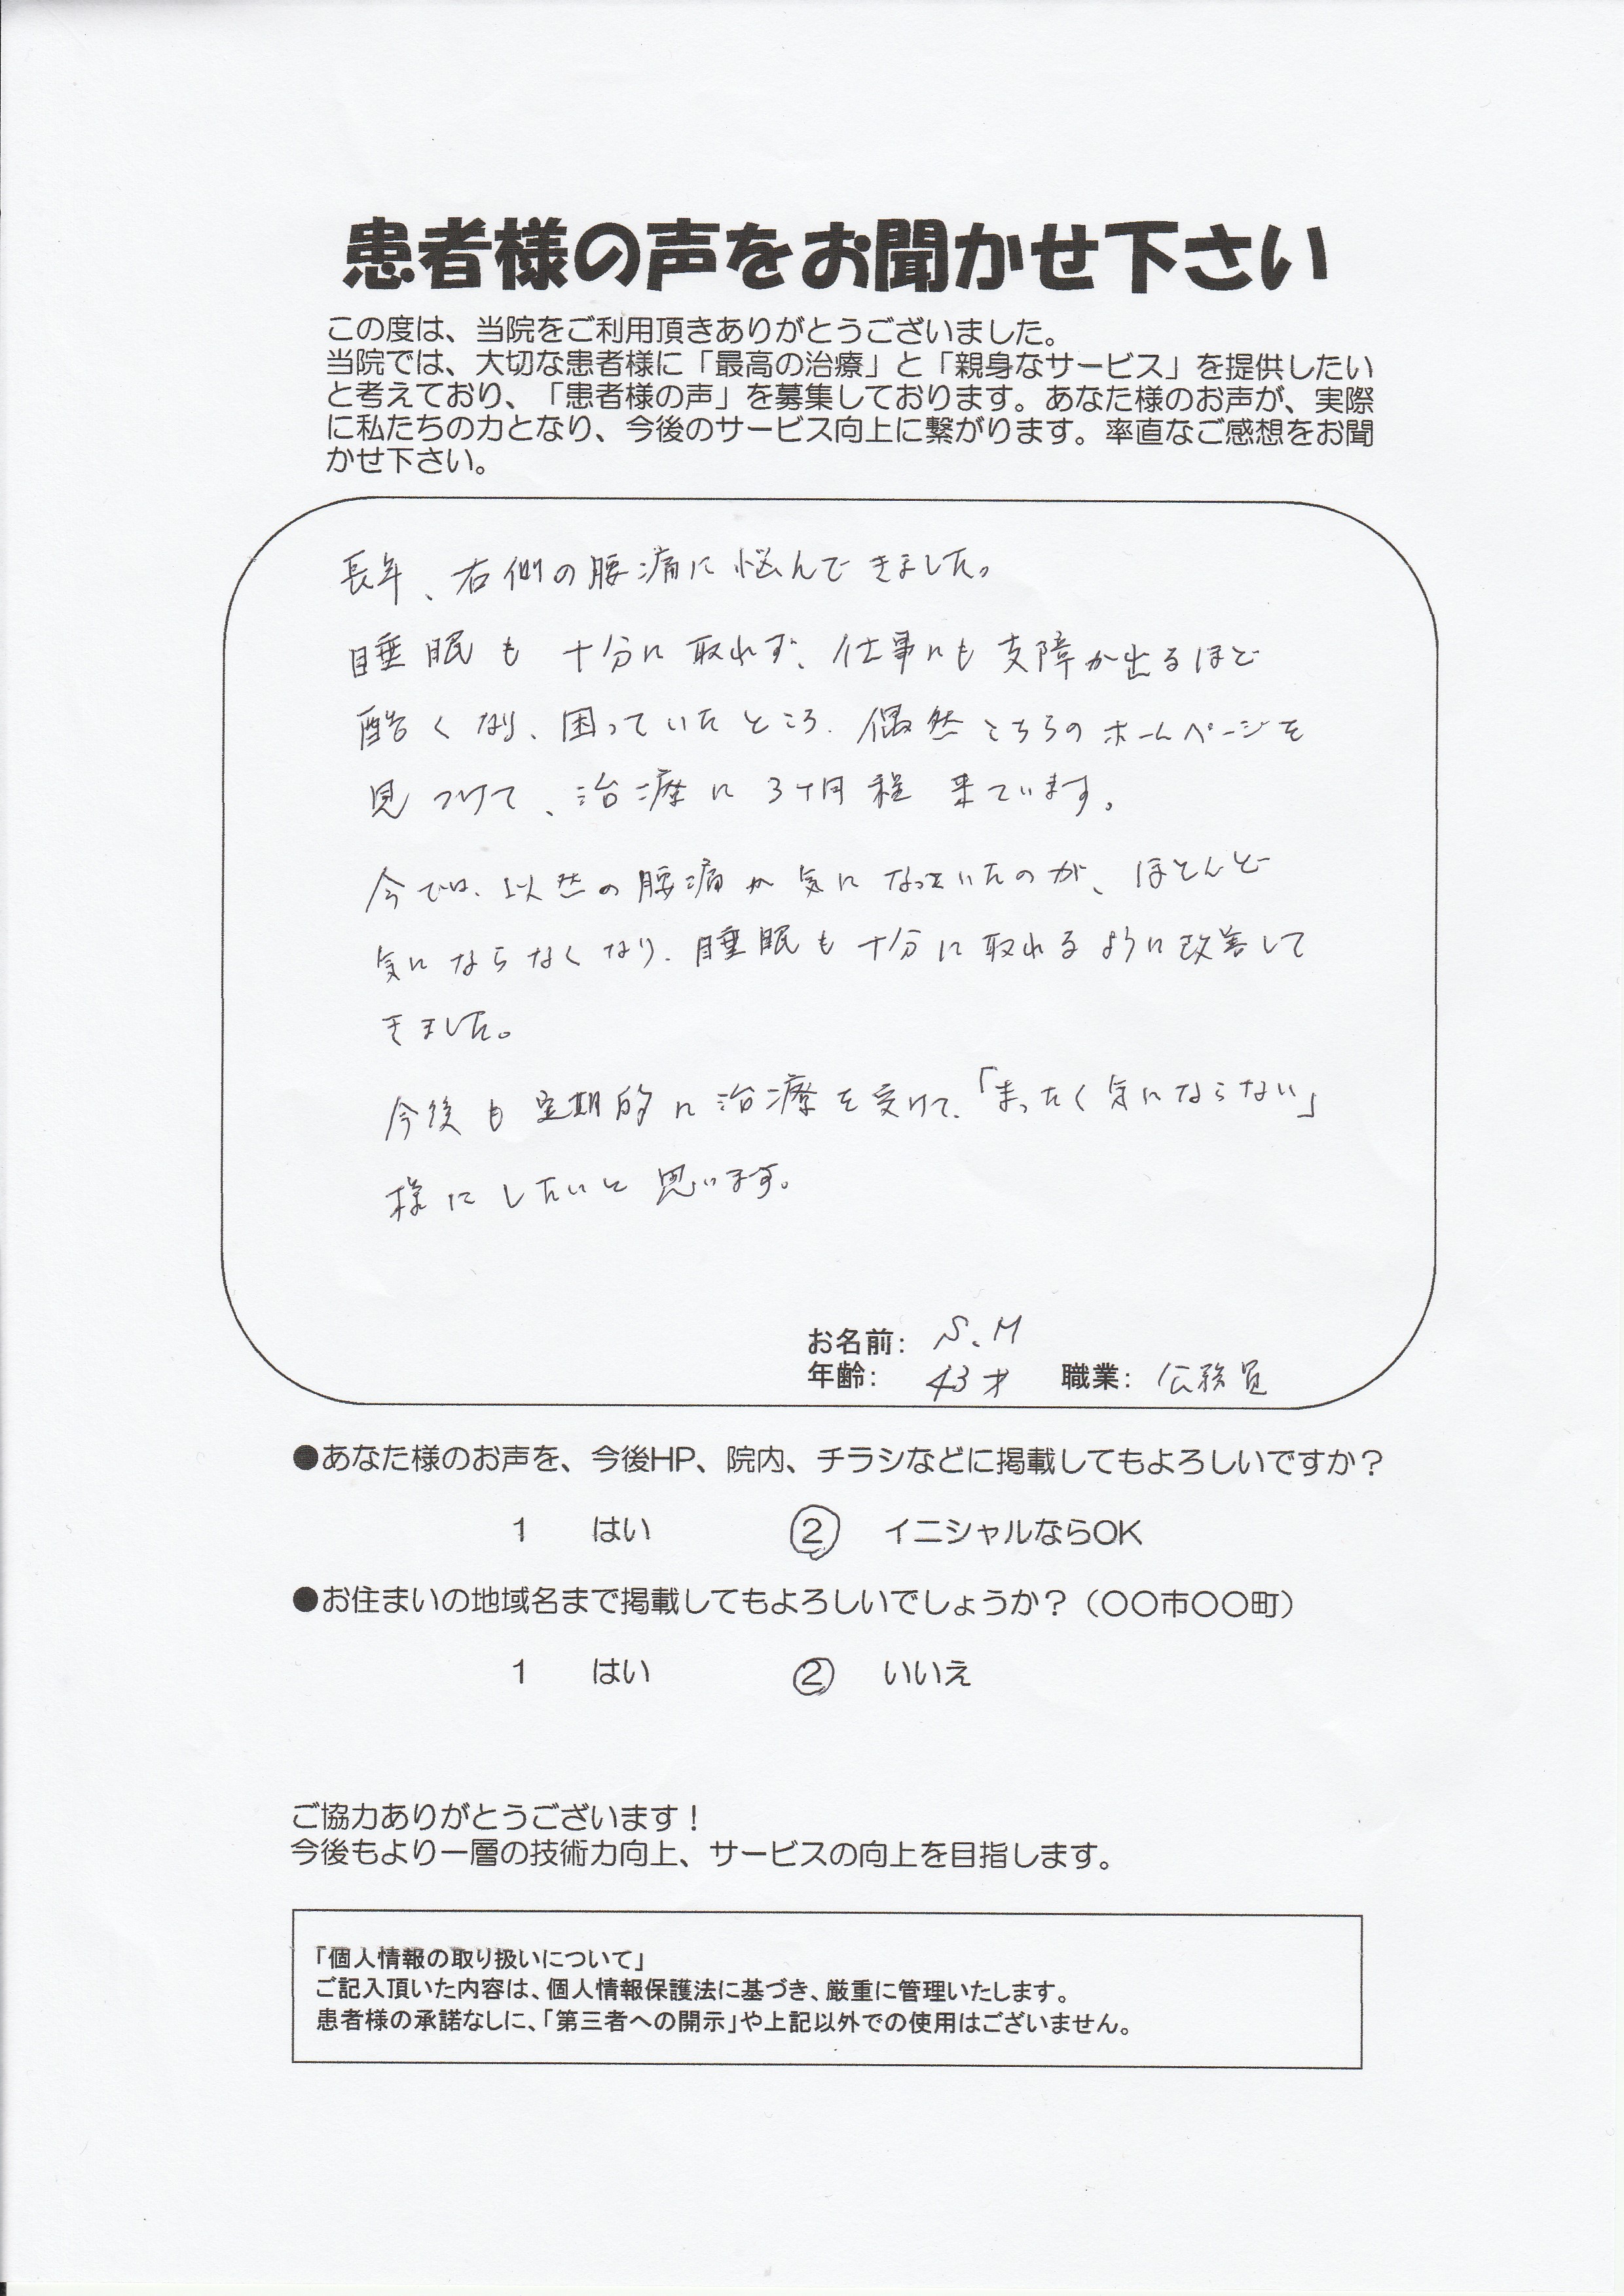 患者様の声をお聞かせ下さい
この度は、当院をご利用頂きありがとうございました。
当院では、大切な患者様に「最高の治療」と「親身なサービス」を提供したい
と考えており、「患者様の声」を募集しております。あなた様のお声が、実際
に私たちの力となり、今後のサービス向上に繋がります。率直なご感想をお聞
かせ下さい。
長年、右側の腰痛に悩んできました。
睡眠も十分に取れず、仕事にも支障が出るほど
酷くなり、困っていたところ、偶然こちらのホームページを
見つけて、治療に3ヶ月程来ています。
今では、以然の腰痛が気になっていたのが、ほとんど
気にならなくなり、睡眠も十分に取れるように改善して
きました。
今後も定期的に治療を受けて、「まったく気にならない」
様にしたいと思います。
お名前: S.M
年齢: 43才 職業: 公務員
●あなた様のお声を、今後HP、院内、チラシなどに掲載してもよろしいですか?
1 はい ② イニシャルならOK
●お住まいの地域名まで掲載してもよろしいでしょうか?(○○市○○町)
1 はい ② いいえ
ご協力ありがとうございます!
今後もより一層の技術力向上、サービスの向上を目指します。
「個人情報の取り扱いについて」
ご記入頂いた内容は、個人情報保護法に基づき、厳重に管理いたします。
患者様の承諾なしに、「第三者への開示」や上記以外での使用はございません。